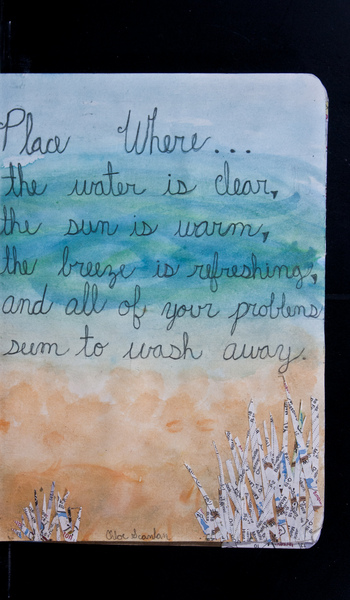 Place Where...
the water is clear,
the sun is warm,
the breeze is refreshing,
and all of your problems
seem to wash away.
Chloe Scanlan